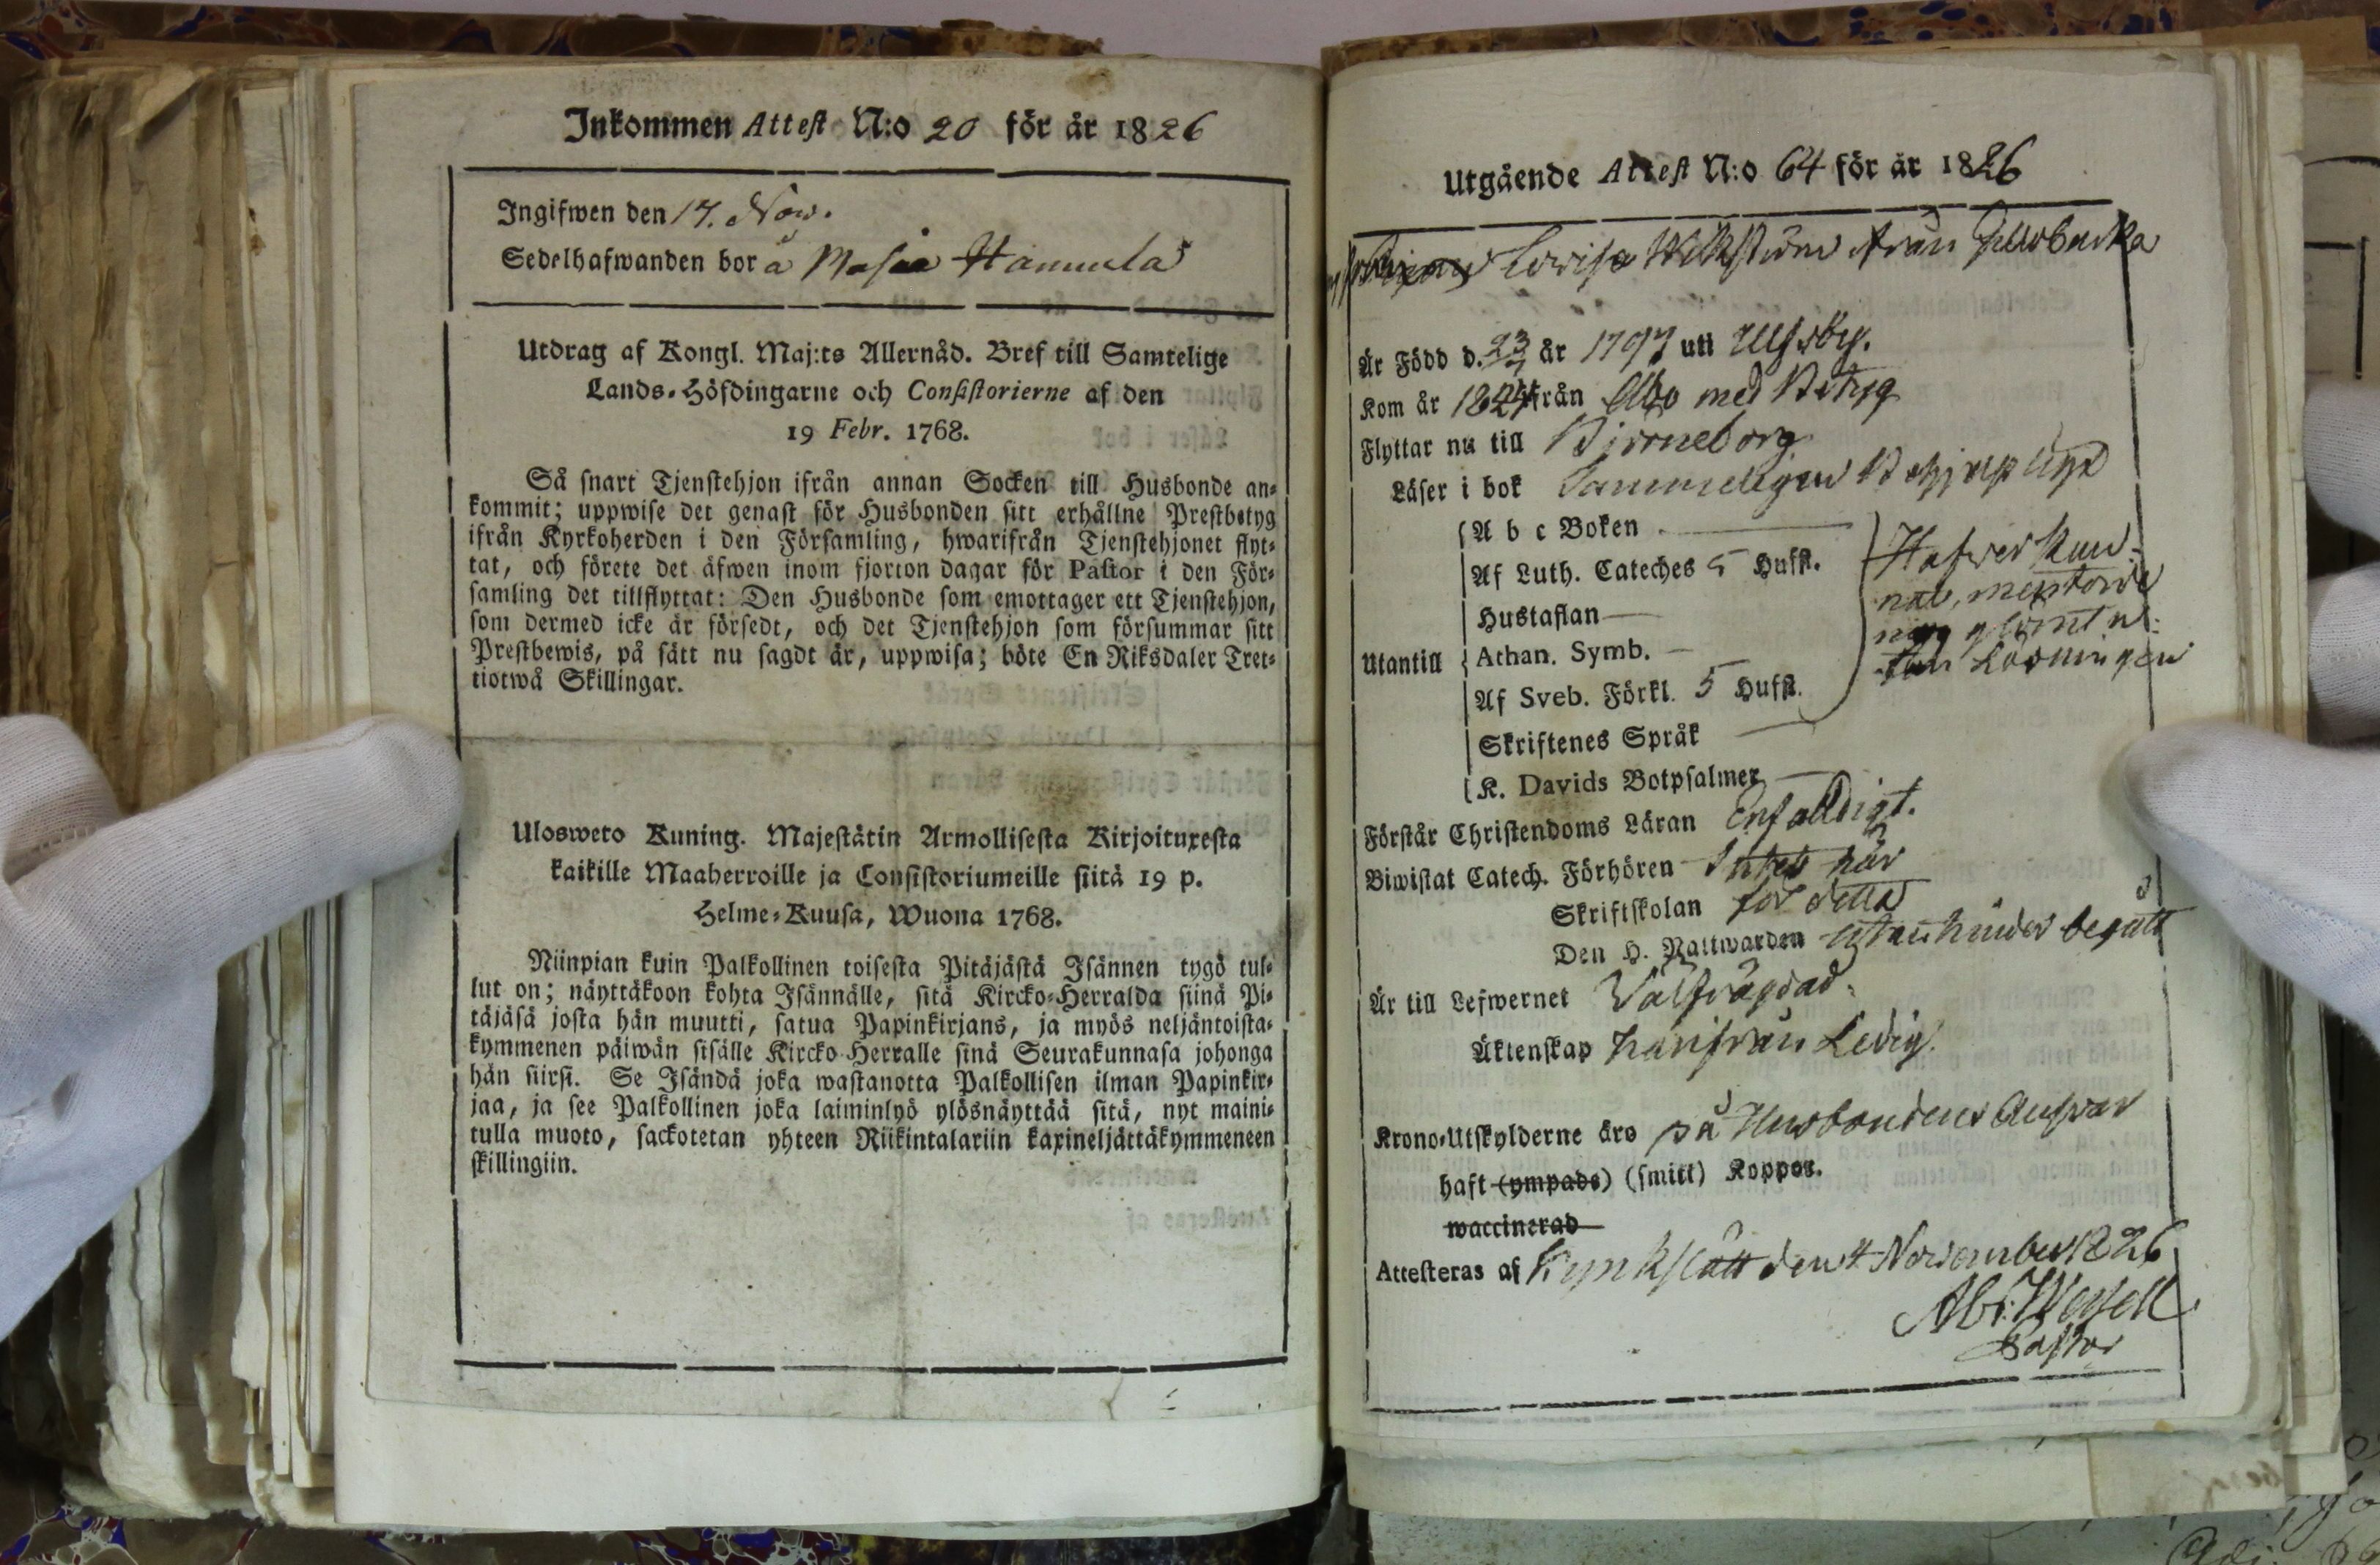 Inkommen Attest N:o 20 för år 1826
Ingifwen den 17. Nov.
Sedelhafwanden bor å Masaa Hannula
Utdrag af Kongl. Maj:ts Allernåd. Bref till Samtelige
Lands-Höfdingarne och Consistorierne af den
19 Febr. 1768.
Så snart Tjenstehjon ifrån annan Socken till Husbonde an-
kommit; uppwise det genast för Husbonden sitt erhållne Prestbetyg
ifrån Kyrkoherden i den Församling, hwarifrån Tjenstehjonet flyt-
tat, och förete det äfwen inom fjorton dagar för Pastor i den För-
samling det tillflyttat: Den Husbonde som emottager ett Tjenstehjon,
som dermed icke är försedt, och det Tjenstehjon som försummar sitt
Prestbewis, på sätt nu sagdt är, uppwisa; böte En Riksdaler Tret-
tiotwå Skillingar.
Ulosweto Kuning. Majestätin Armollisesta Kirjoituxesta
kaikille Maaherroille ja Consistoriumeille siitä 19 p.
Helme-Kuusa, Wuona 1768.
Niinpian kuin Palkollinen toisesta Pitäjästä Isännen tygö tul-
lut on; näyttäkoon kohta Isännälle, sitä Kircko-Herralda siinä Pi-
täjäsä josta hän muutti, satua Papinkirjans, ja myös neljäntoista-
kymmenen päiwän sisälle Kircko Herralle sinä Seurakunnasa johonga
hän siirsi. Se Isändä joka wastanotta Palkollisen ilman Papinkir-
jaa, ja see Palkollinen joka laiminlyö ylösnäyttää sitä, nyt maini-
tulla muoto, sackotetan yhteen Riikintalariin kaxineljättäkymmeneen
skillingiin.
Utgående Attest N:o 64 för år 1826
Lovisa Wikström från
Är Född d. 23 år 1797 uti Ulfsby.
Kom år 1824 från Åbo med Betyg
Flyttar nu till Björneborg
Läser i bok
A b c Boken —
Af Luth. Cateches 5 Hufst.
Hustaflan —
Utantill Athan. Symb. —
Af Sveb. Förkl. 5 Hufst.
Skriftenes Språk —
K. Davids Botpsalmer —
Hafver kun-
nat, men torde
glömt ut-
Läsningen
Förstår Christendoms Läran Enfaldigt.
Biwistat Catech. Förhören Intet här
Skriftskolan för detta
Den H. Nattwarden utan hinder begått
Är till Lefwernet Välfrägdad.
Äktenskap härifrån Ledig.
Krono-Utskylderne äro på Husbondens Ansvar
haft (ympade) (smitt) Koppor.
waccinerad
Attesteras af Kyrkslätt den 4 November 1826
Pastor